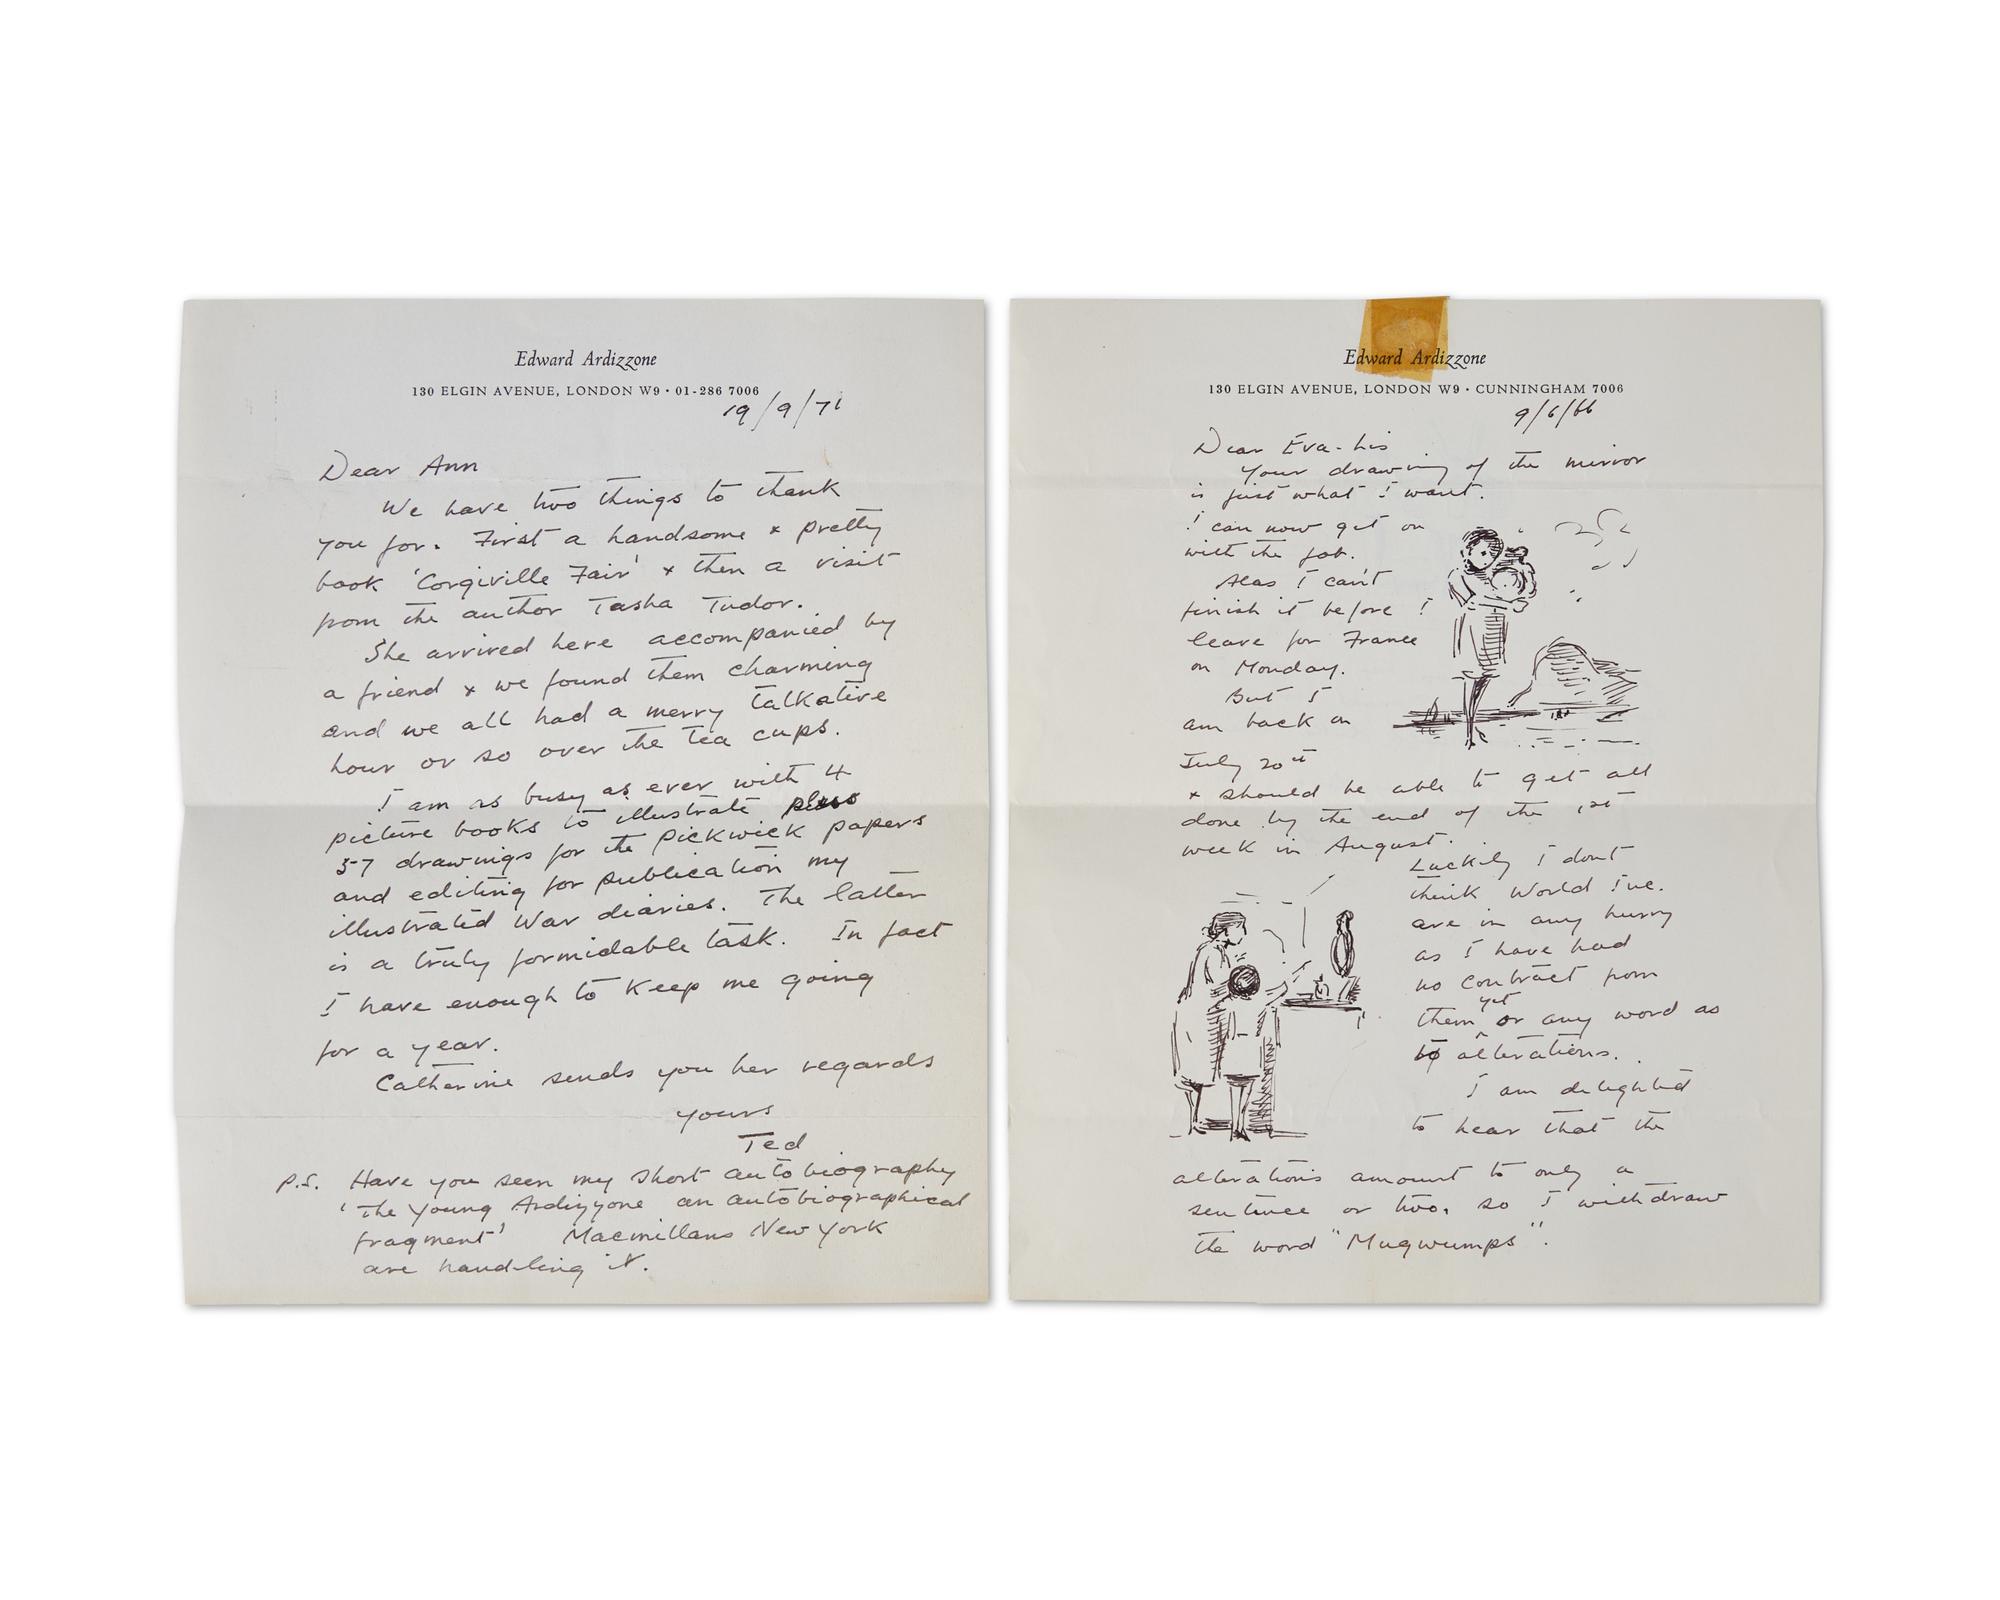 Edward Ardizzone
130 ELGIN AVENUE, LONDON W9 • 01-286 7006
19/9/71
Dear Ann
We have two things to thank
you for. First a handsome & pretty
book 'Corgiville Fair' & then a visit
from the author Tasha Tudor.
She arrived here accompanied by
a friend & we found them charming
and we all had a merry talkative
hour or so over the tea cups.
I am as busy as ever with 4
picture books to illustrate plus
57 drawings for the Pickwick papers
and editing for publication my
illustrated War diaries. The latter
is a truly formidable task. In fact
I have enough to keep me going
for a year.
Catherine sends you her regards
yours
Ted
P.S. Have you seen my short autobiography
'The Young Ardizzone an autobiographical
fragment' Macmillans New York
are handling it.
Edward Ardizzone
130 ELGIN AVENUE, LONDON W9 • CUNNINGHAM 7006
9/6/66
Dear Eva-Lis
Your drawing of the mirror
is just what I want.
I can now get on
with the job.
Alas I can't
finish it before I
leave for France
on Monday.
But I
am back on
July 20th
& should be able to get all
done by the end of the 1st
week in August.
Luckily I dont
think World Inc.
are in any hurry
as I have had
no contract from
yet
them or any word as
to alterations.
I am delighted
to hear that the
alterations amount to only a
sentence or two, so I withdraw
the word "Mugwumps".